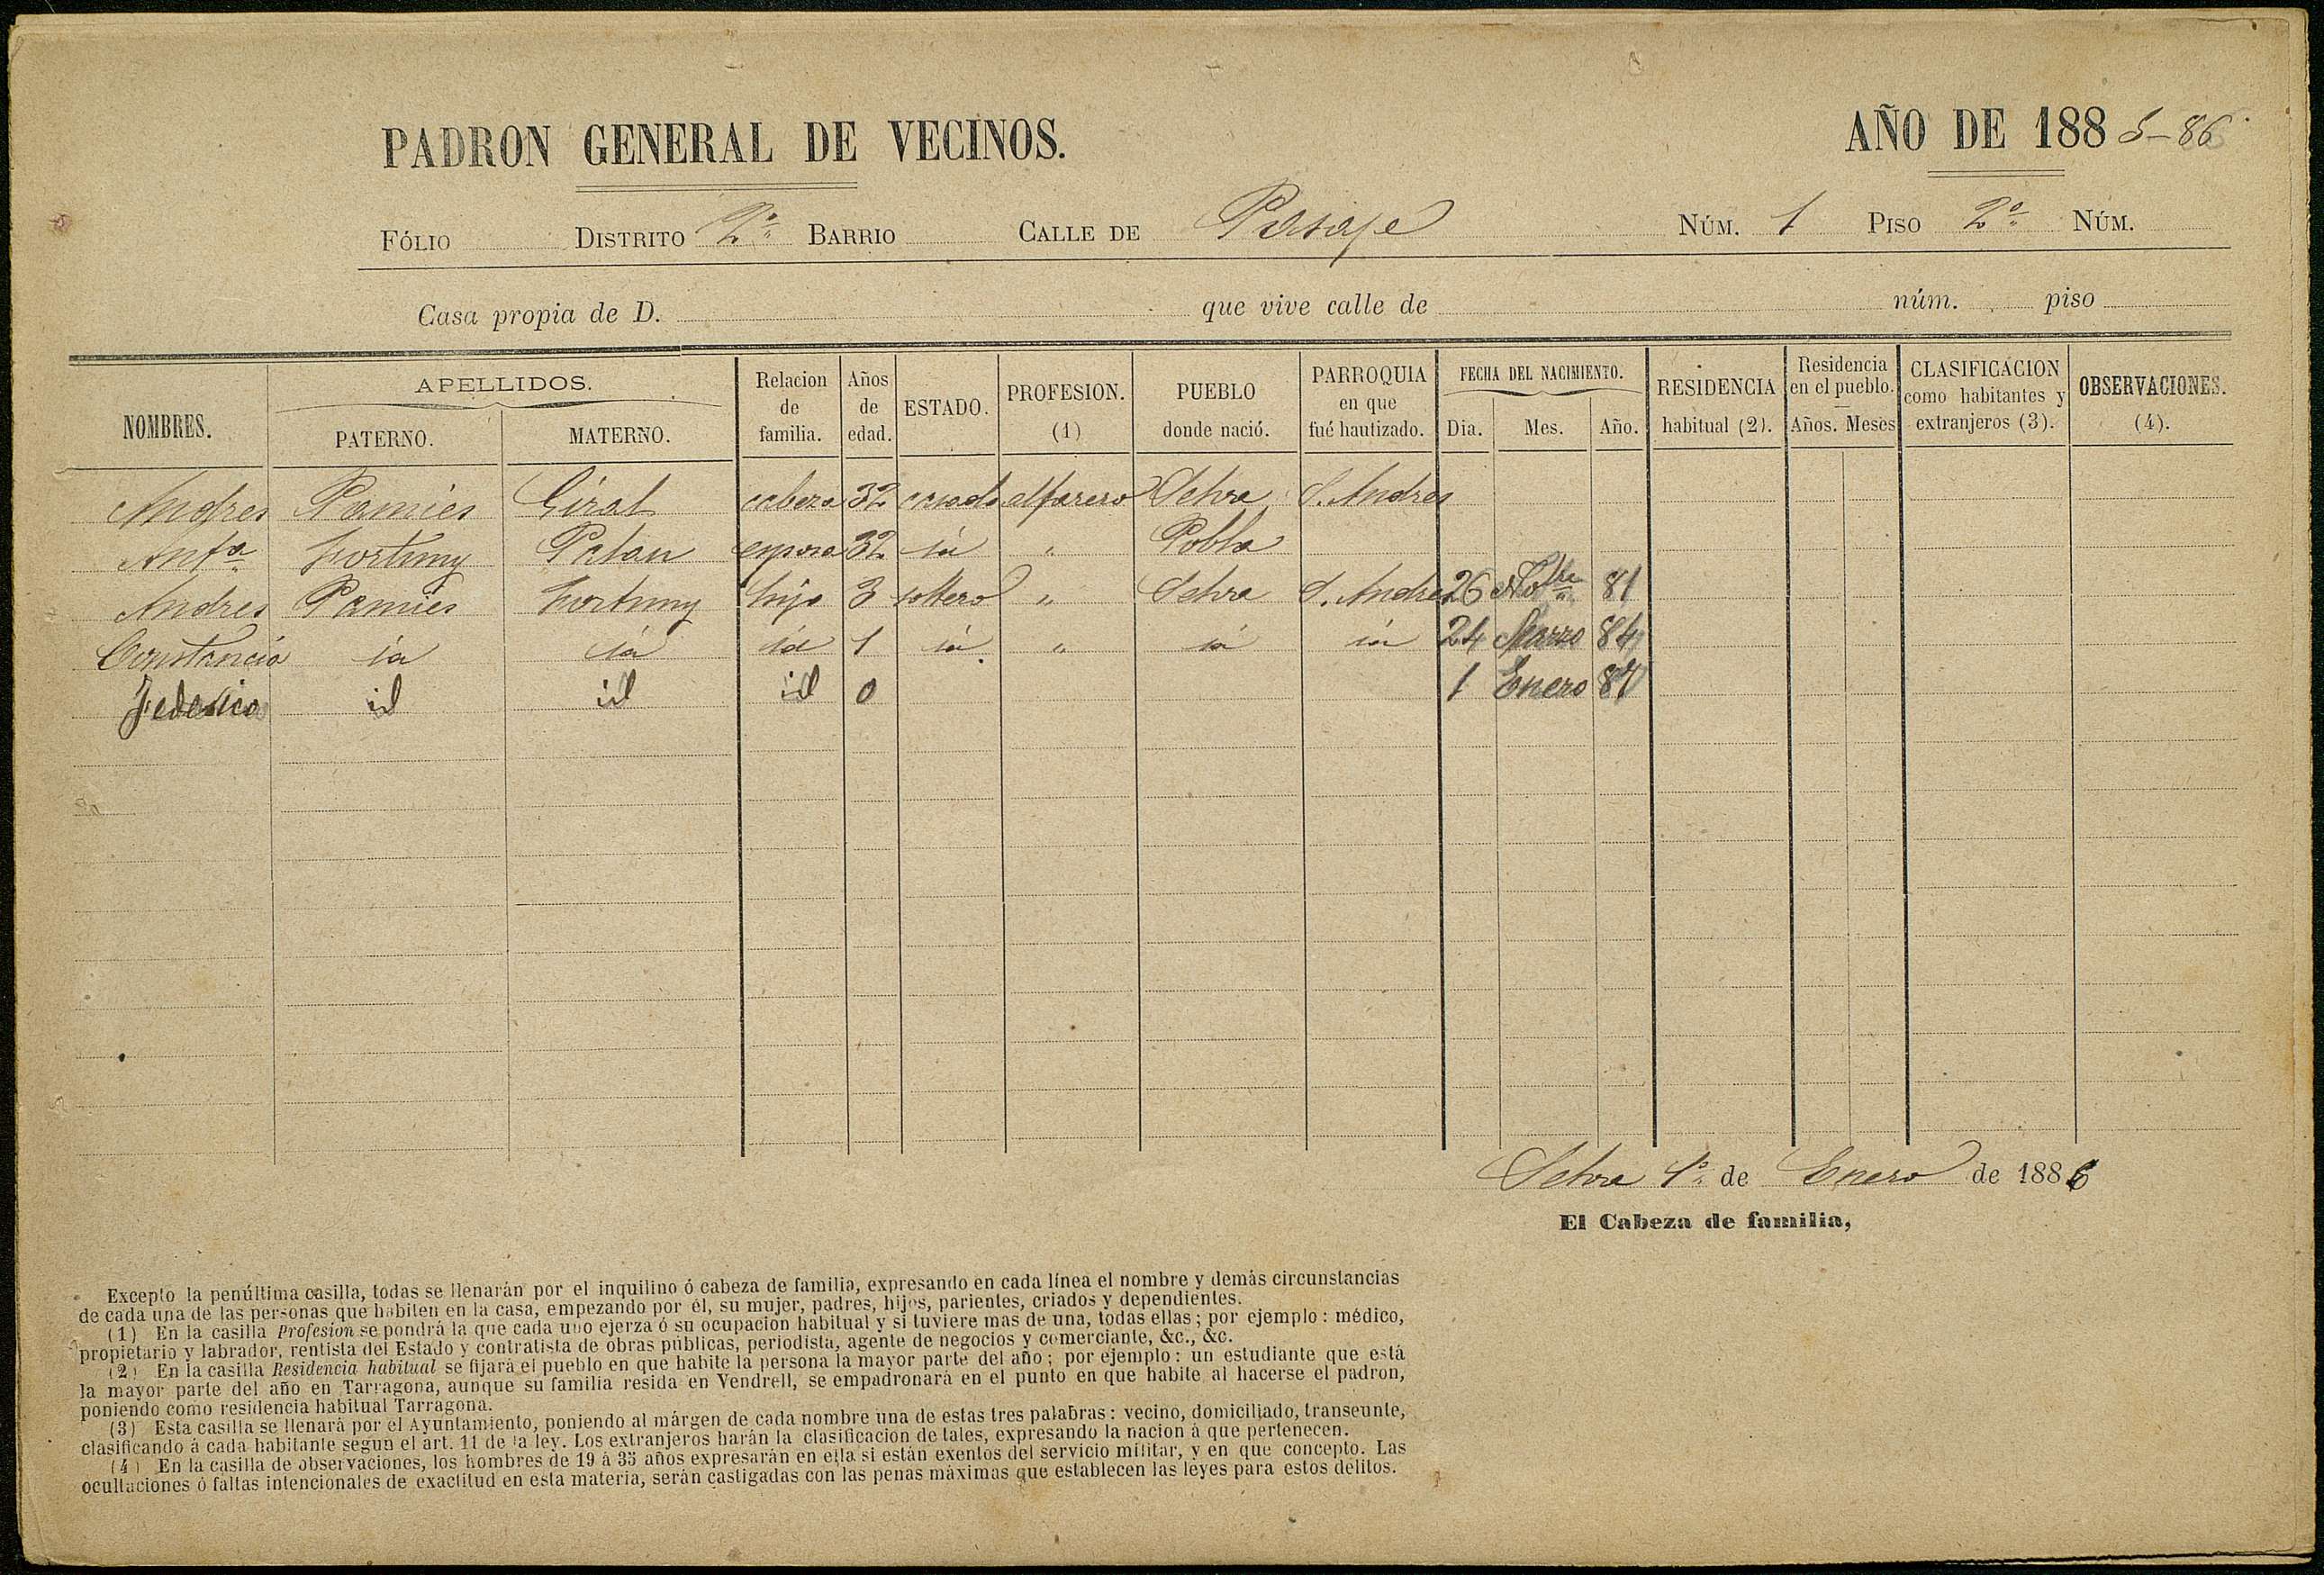 PADRON GENERAL DE VECINOS. AÑO DE 188 5-86
FÓLIO DISTRITO 2º BARRIO CALLE DE Pasaje NÚM. 1 PISO 2º NÚM.
Casa propia de D. que vive calle de núm. piso
NOMBRES. APELLIDOS. PATERNO. MATERNO. Relacion de familia. Años de edad. ESTADO. PROFESION. (1) PUEBLO donde nació. PARROQUIA en que fué bautizado. FECHA DEL NACIMIENTO. Dia. Mes. Año. RESIDENCIA habitual (2). Residencia en el pueblo. Años. Meses CLASIFICACION como habitantes y extranjeros (3). OBSERVACIONES. (4).
Andres Pamies Giral cabeza 32 casado alfarero Selva S. Andres
Antª Fortuny esposa 32 id " Pobla
Andres Pamies Fortuny hijo 3 soltero " Selva S. Andres 26 Nobre 81
Constancia id id id 1 id " id id 24 Marzo 84
Federico id id id 0 1 Enero 87
Selva 1º de Enero de 1886
El Cabeza de familia,
Excepto la penúltima casilla, todas se llenarán por el inquilino ó cabeza de familia, expresando en cada línea el nombre y demás circunstancias
de cada una de las personas que habiten en la casa, empezando por él, su mujer, padres, hijos, parientes, criados y dependientes.
(1) En la casilla Profesion se pondrá la que cada uno ejerza ó su ocupacion habitual y si tuviere mas de una, todas ellas; por ejemplo: médico,
propietario y labrador, rentista del Estado y contratista de obras públicas, periodista, agente de negocios y comerciante, &c., &c.
(2) En la casilla Residencia habitual se fijará el pueblo en que habite la persona la mayor parte del año; por ejemplo: un estudiante que está
la mayor parte del año en Tarragona, aunque su familia resida en Vendrell, se empadronará en el punto en que habite al hacerse el padron,
poniendo como residencia habitual Tarragona.
(3) Esta casilla se llenará por el Ayuntamiento, poniendo al márgen de cada nombre una de estas tres palabras: vecino, domiciliado, transeunte,
clasificando á cada habitante segun el art. 11 de la ley. Los extranjeros harán la clasificacion de tales, expresando la nacion á que pertenecen.
(4) En la casilla de observaciones, los hombres de 19 á 35 años expresarán en ella si están exentos del servicio militar, y en que concepto. Las
ocultaciones ó faltas intencionales de exactitud en esta materia, serán castigadas con las penas máximas que establecen las leyes para estos delitos.